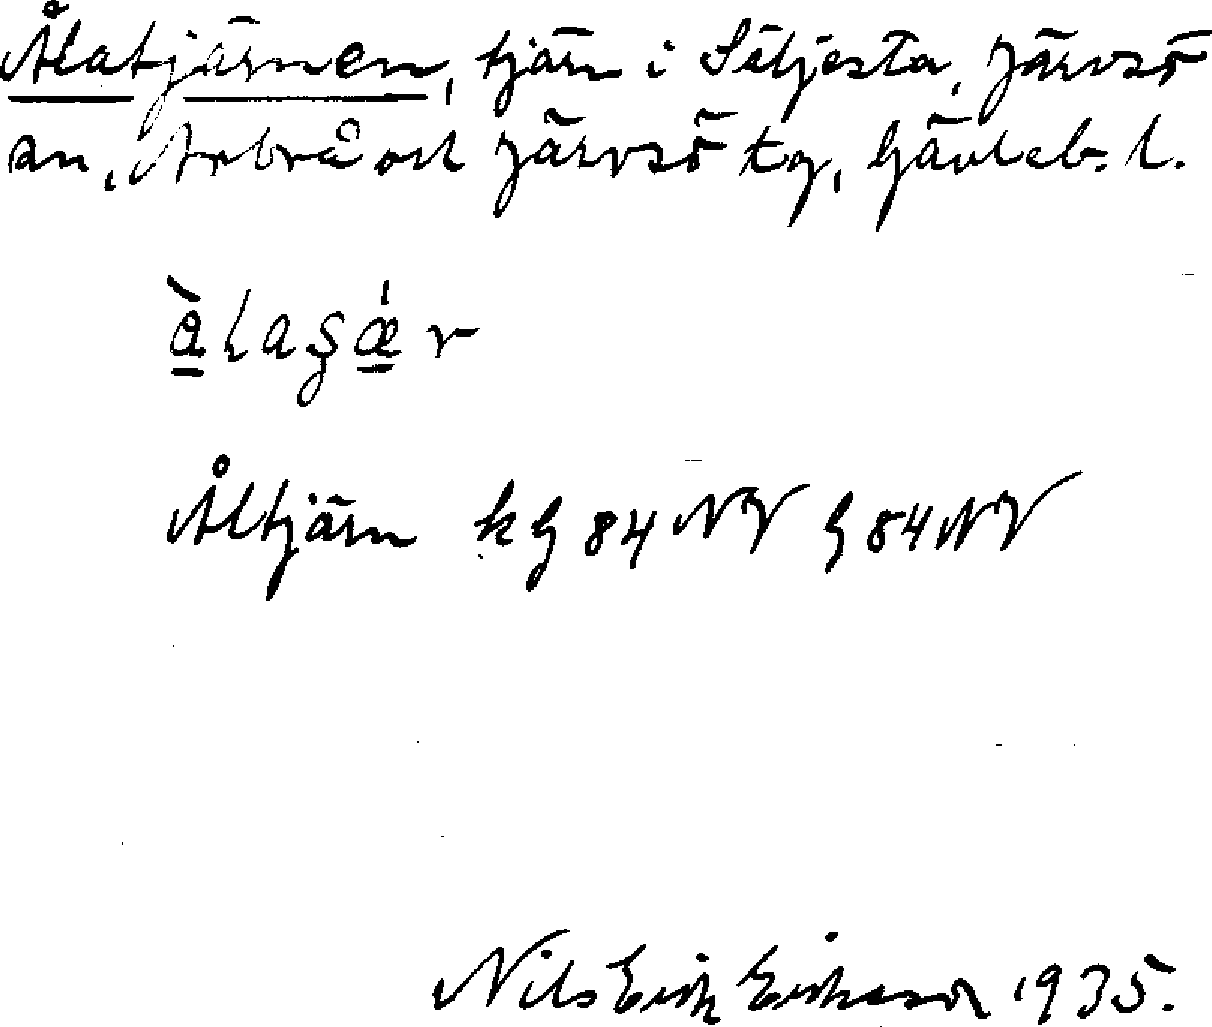 Ålatjärnen, tjärn i Säljesta, Järvsö
sn, Arbrå och Järvsö tg, Gävleb. l.
Åltjärn kG 84 NV G 84 NV
Nils Erik Eriksson 1935.